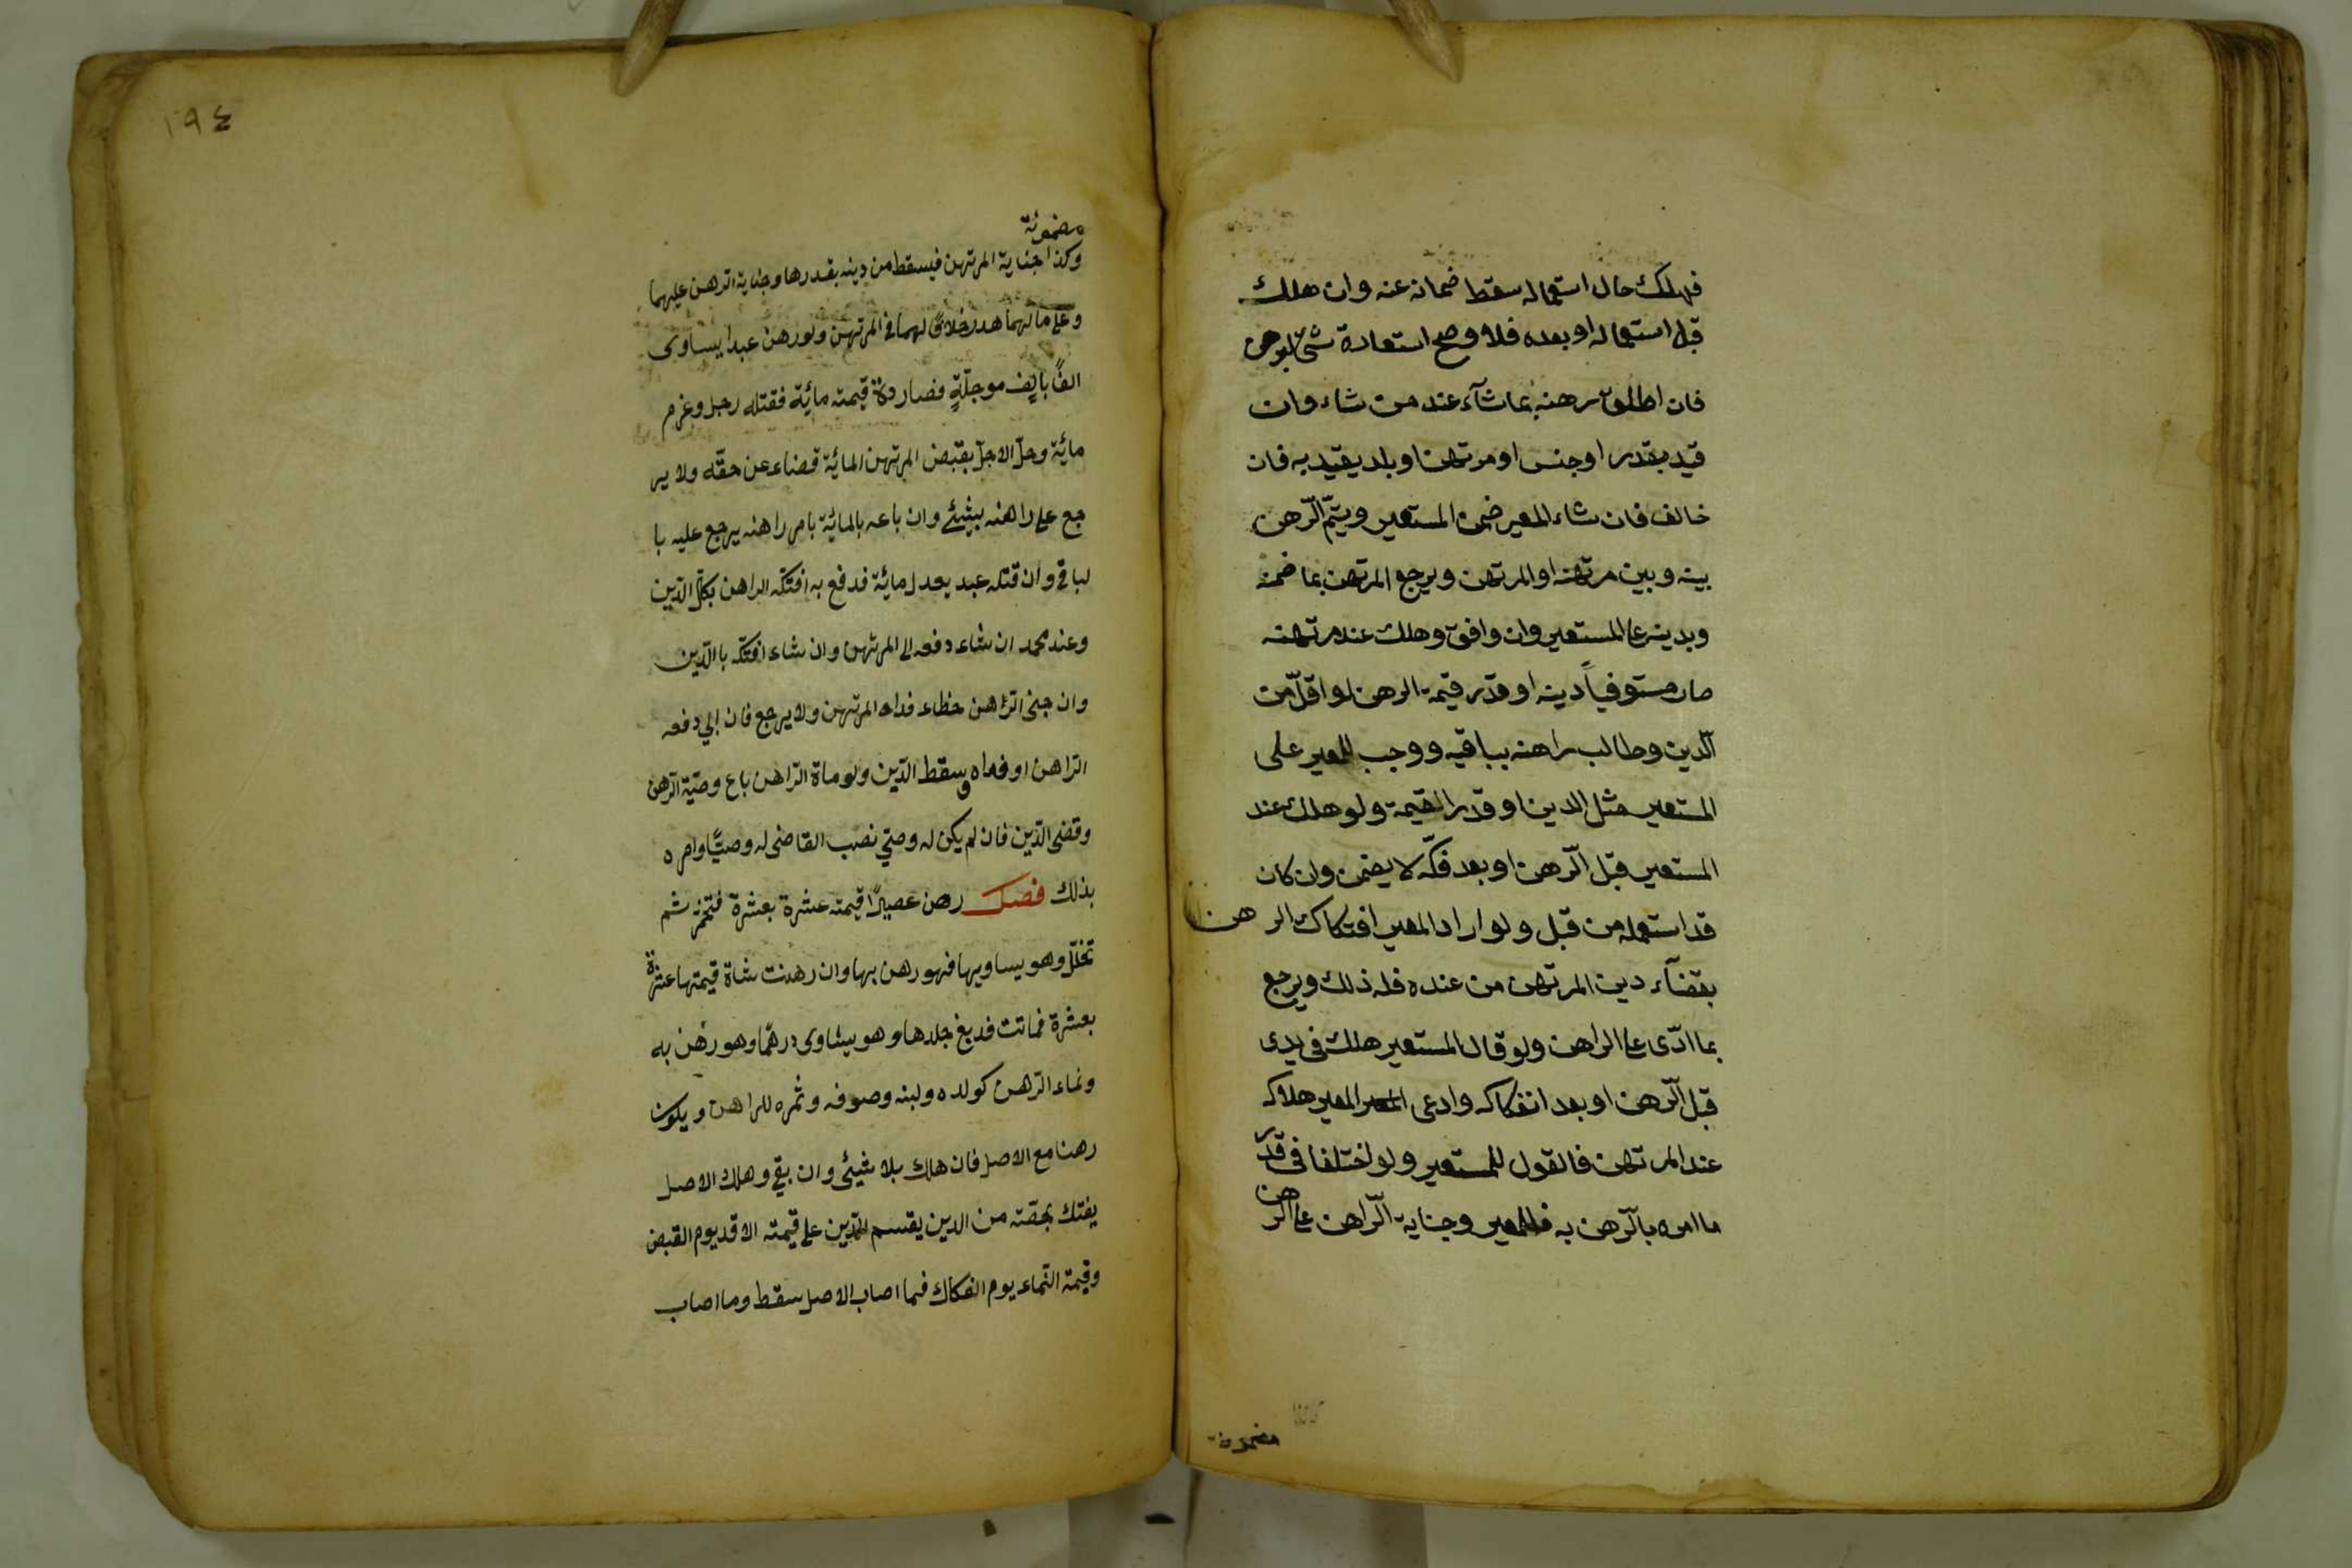 فهلك حال استعماله سقط ضمانه عنه وان هلك
قبل استعماله او بعده فلا وصح استعارة شئ ليرهن
فان اطلق رهنه بما شآء عند من شاء وان
قيد بقدر او جنس او مرتهن او بلد يقيد به فان
خالف فان شاء المعير ضمن المستعير ويتمّ الرّهن
بينه وبين مرتهنه او المرتهن ويرجع المرتهن بما ضمنه
وبدينه على المستعير وان وافق وهلك عند مرتهنه
صار مستوفياً دينه او قدر قيمة الرهن لو اقلّ من
الّدين وطالب راهنه بباقيه ووجب للمعير على
المستعير مثل الدين او قدر القيمة ولو هلك عند
المستعير قبل الرّهن او بعد فكّه لا يضمن وان كان
قد استعمله من قبل ولو اراد المعير افتكاك الرهن
بقضآء دين المرتهن من عنده فله ذلك ويرجع
بما ادّى على الراهن ولو قال المستعير هلك في يدى
قبل الرّهن او بعد انفكاكه وادعى المعير هلاكه
عند المرتهن فالقول للمستعير ولو اختلفا في قدر
ما امره بالرّهن به فللمعير وجناية الرّاهن على الرهن
مضمونة
١٩٤
مضمونة
وكذا جناية المرتهن فيسقط من دينه بقدرها وجناية الرهن عليهما
وعلى مالهما هدر خلافً لهما في المرتهن ولو رهن عبدا يساوى
الفً بالف موجلّةٍ فصاردة قيمته مائية فقتله رجل وغرم
مائية وحلّ الاجل بقبض المرتهن المائية قضاء عن حقّه ولا ير
جع على راهنه بشيئ وان باعه بالمائية بامر راهنه يرجع عليه با
لباقي وان قتله عبد يعدل مائية فدفع به افتكّه الراهن بكلّ الدّين
وعند محمد ان شاء دفعه الى المرتهن وان شاء افتكّه باالدّين
وان جنى الرّاهن خطاء فداه المرتهن ولا يرجع فان ابي دفعه
الرّاهن او فداه وسقط الدّين ولو ماة الرّاهن باع وصيّه الرّهن
وقضى الدّين فان لم يكن له وصيّ نصب القاضى له وصيًّا وامره
بذلك فصل رهن عصيرًا قيمته عشرة بعشرة فتخمّر ثم
تخلّل وهو يساويها فهو رهن بها وان رهنت شاة قيمتها عشرة
بعشرة فماتت فدبغ جلدها وهو يساوى درهمًا وهو رهن به
ونماء الرّهن كولده ولبنه وصوفه وثمره للراهن ويكون
رهنا مع الاصل فان هلك بلا شيئى وان بقي وهلك الاصل
يفتك بحصّته من الدين يقسم الدّين على قيمته الا قد يوم القبض
وقيمة النّماء يوم الفكاك فما اصاب الاصل سقط وما اصاب